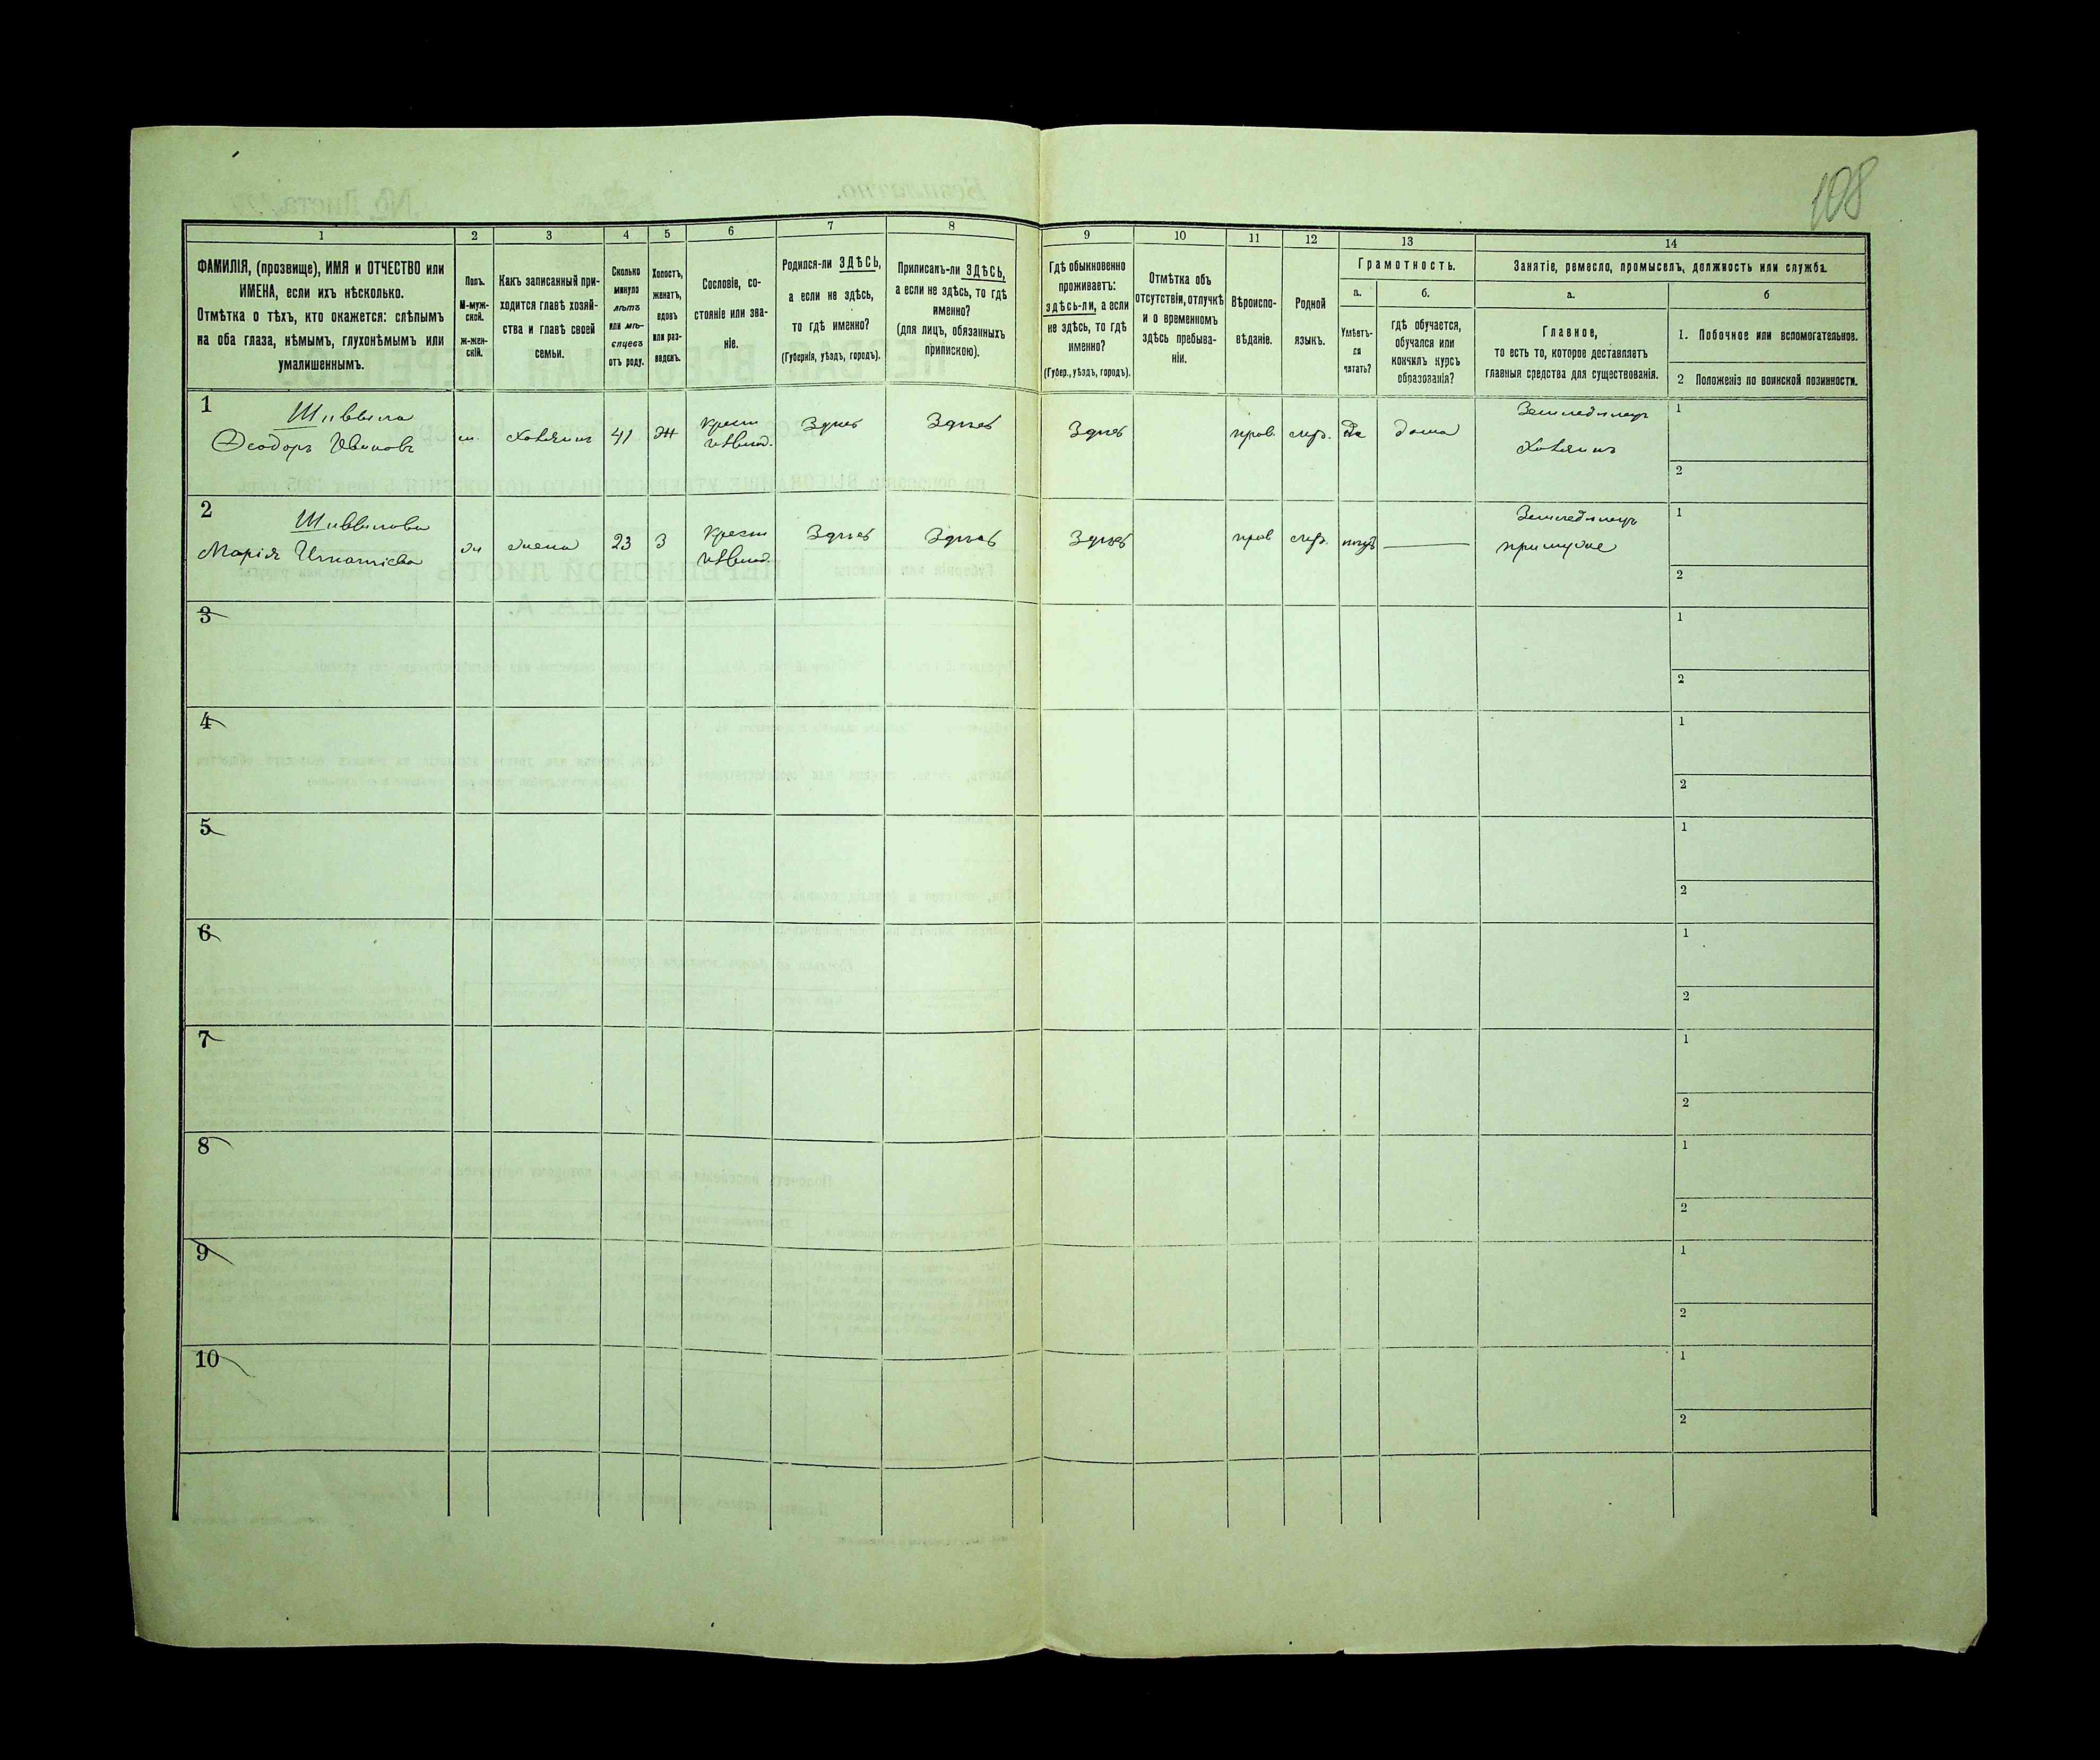 108
1
2
3
4
5
6
7
8
9
10
11
12
13
14
ФАМИЛІЯ, (прозвище), ИМЯ и ОТЧЕСТВО или
ИМЕНА, если ихъ нѣсколько.
Отмѣтка о тѣхъ, кто окажется: слѣпымъ
на оба глаза, нѣмымъ, глухонѣмымъ или
умалишеннымъ.
Полъ.
М-муж-
ской.
ж-жен-
скій.
Какъ записанный при-
ходится главѣ хозяй-
ства и главѣ своей
семьи.
Сколько
минуло
лѣтъ
или мѣ-
сяцевъ
отъ роду.
Холостъ,
женатъ,
вдовъ
или раз-
веденъ.
Сословіе, со-
стояніе или зва-
ніе.
Родился-ли ЗДѢСЬ,
а если не здѣсь,
то гдѣ именно?
(Губернія, уѣздъ, городъ).
Приписанъ-ли ЗДѢСЬ,
а если не здѣсь, то гдѣ
именно?
(для лицъ, обязанныхъ
припискою).
Гдѣ обыкновенно
проживаетъ:
здѣсь-ли, а если
не здѣсь, то гдѣ
именно?
(Губер., уѣздъ, городъ).
Отмѣтка объ
отсутствіи, отлучкѣ
и о временномъ
здѣсь пребыва-
ніи.
Вѣроиспо-
вѣданіе.
Родной
языкъ.
Грамотность.
а.
Умѣетъ-
ли
читать?
б.
гдѣ обучается,
обучался или
кончилъ курсъ
образованія?
Занятіе, ремесло, промыселъ, должность или служба.
а.
Главное,
то есть то, которое доставляетъ
главныя средства для существованія.
б
1. Побочное или вспомогательное.
2 Положеніе по воинской повинности.
1
Ѳеодоръ Ивановъ
м.
хозяинъ
41
Ж
крест
Здѣсь
Здѣсь
Здѣсь
прав.
да
дома
Земледѣлецъ
хозяинъ
1
2
2
Марія Игнатіева
ж
жена
23
З
крест
Здѣсь
Здѣсь
Здѣсь
прав
Земледѣлецъ
1
2
3
1
2
4
1
2
5
1
2
6
1
2
7
1
2
8
1
2
9
1
2
10
1
2